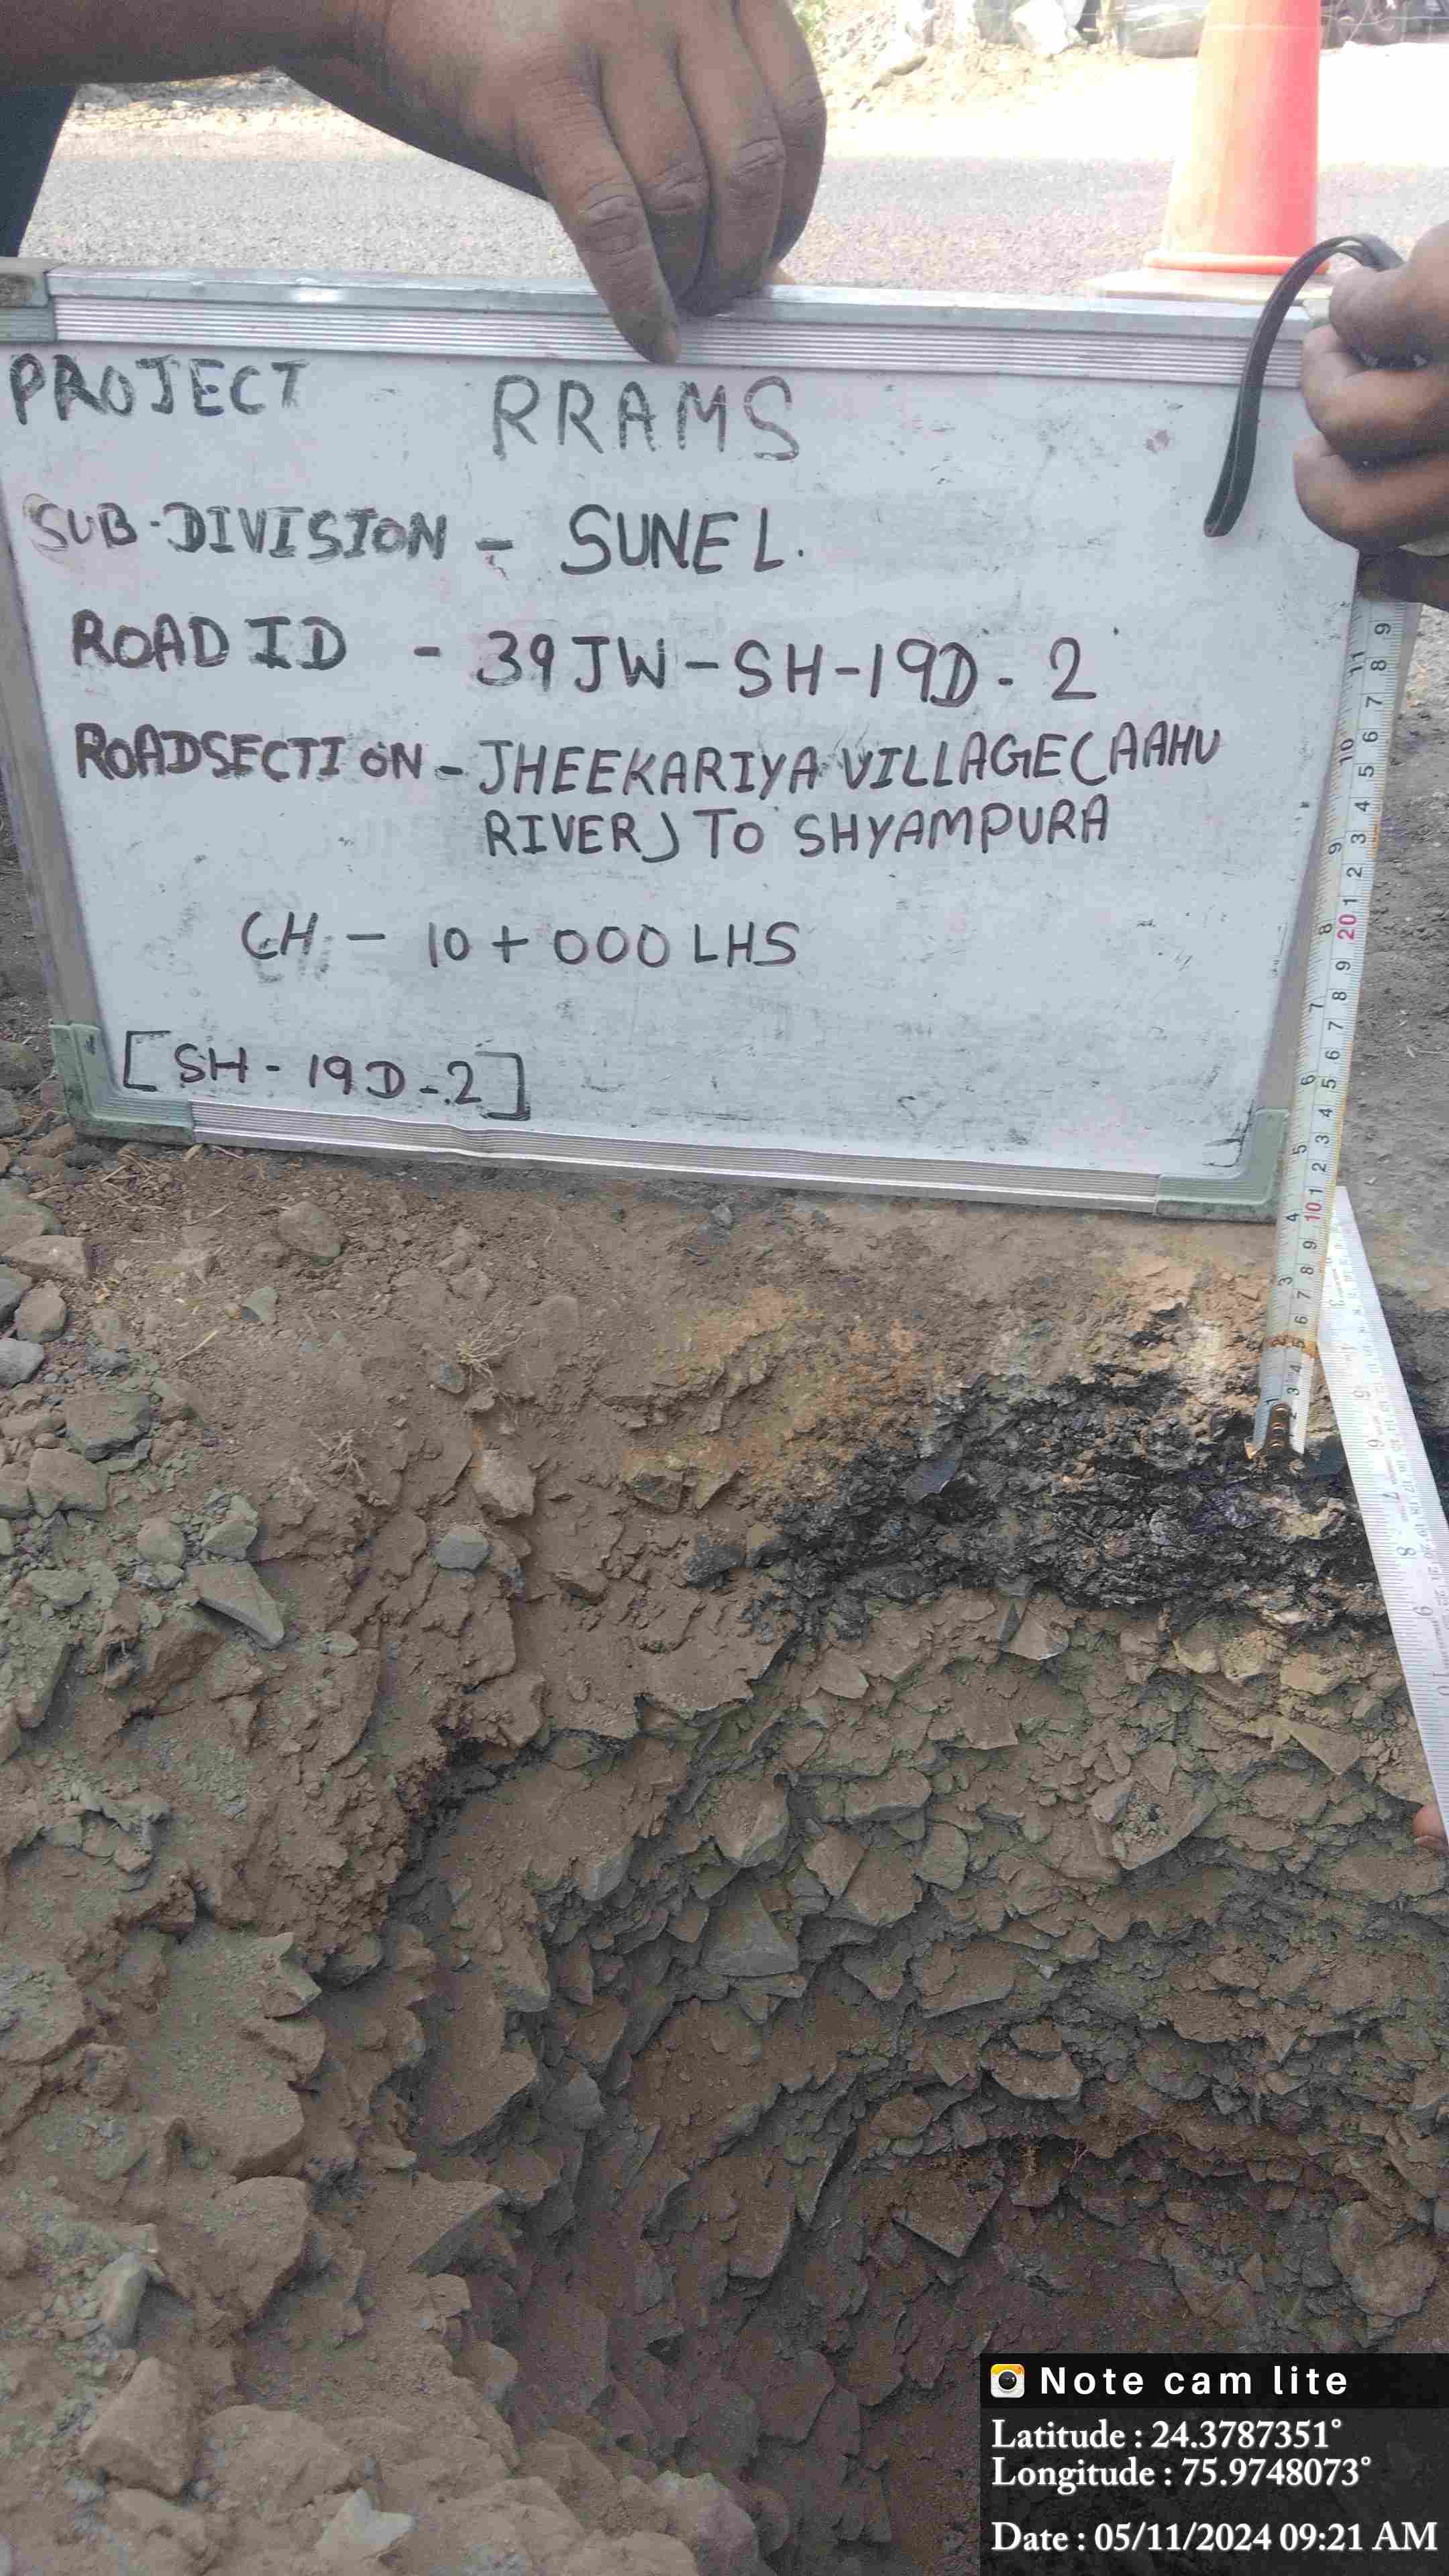 PROJECT - RRAMS
SUB-DIVISION - SUNEL.
ROAD ID - 39JW-SH-19D-2
ROADSECTION - JHEEKARIYA VILLAGE (AAHU
RIVER) TO SHYAMPURA
CH - 10+000 LHS
[SH-19D-2]
Note cam lite
Latitude : 24.3787351°
Longitude : 75.9748073°
Date : 05/11/2024 09:21 AM